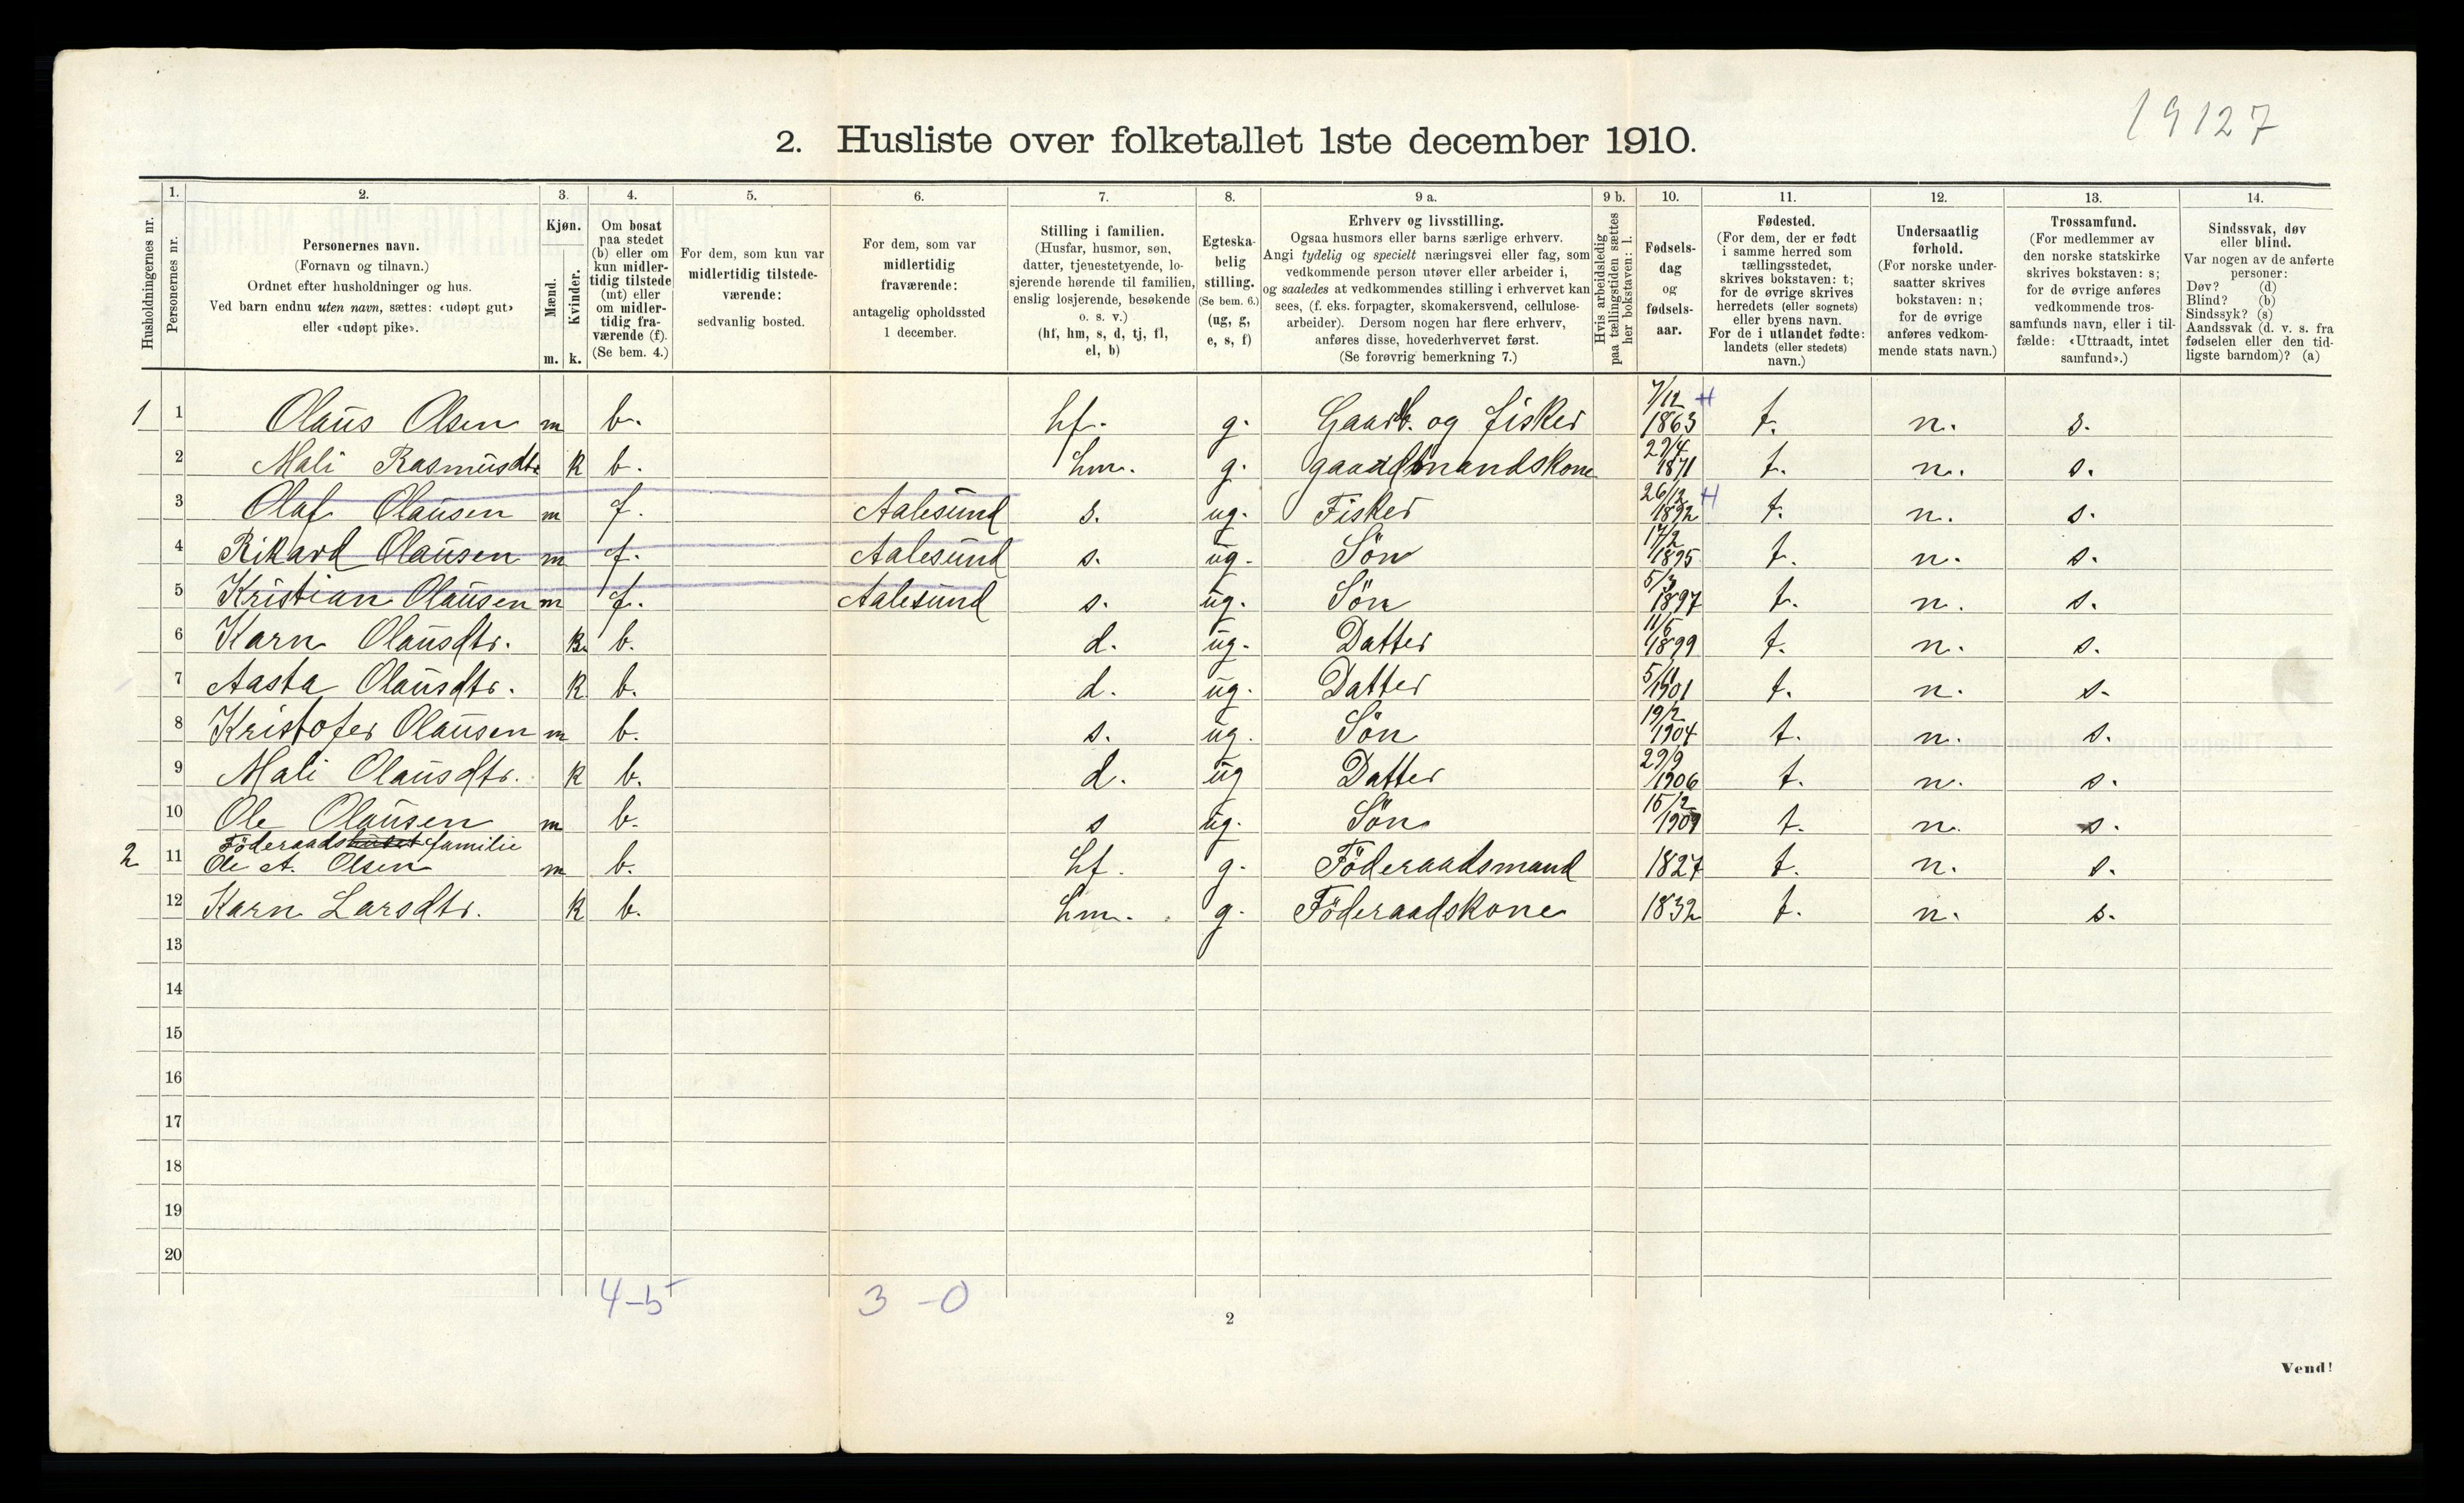 19127
2. Husliste over folketallet 1ste december 1910.
Husholdningernes nr.
1.
Personernes nr.
2.
Personernes navn.
(Fornavn og tilnavn.)
Ordnet efter husholdninger og hus.
Ved barn endnu uten navn, sættes: «udøpt gut»
eller «udøpt pike».
3.
Kjøn.
Mænd.
Kvinder.
m. k.
4.
Om bosat
paa stedet
(b) eller om
kun midler-
tidig tilstede
(mt) eller
om midler-
tidig fra-
værende (f).
(Se bem. 4.)
5.
For dem, som kun var
midlertidig tilstede-
værende:
sedvanlig bosted.
6.
For dem, som var
midlertidig
fraværende:
antagelig opholdssted
1 december.
7.
Stilling i familien.
(Husfar, husmor, søn,
datter, tjenestetyende, lo-
sjerende hørende til familien,
enslig losjerende, besøkende
o. s. v.)
(hf, hm, s, d, tj, fl,
el, b)
8.
Egteska-
belig
stilling.
(Se bem. 6.)
(ug, g,
e, s, f)
9 a.
Erhverv og livsstilling.
Ogsaa husmors eller barns særlige erhverv.
Angi tydelig og specielt næringsvei eller fag, som
vedkommende person utøver eller arbeider i,
og saaledes at vedkommendes stilling i erhvervet kan
sees, (f. eks. forpagter, skomakersvend, cellulose-
arbeider). Dersom nogen har flere erhverv,
anføres disse, hovederhvervet først.
(Se forøvrig bemerkning 7.)
9 b.
Hvis arbeidsledig
paa tællingstiden sættes
her bokstaven: l.
10.
Fødsels-
dag
og
fødsels-
aar.
11.
Fødested.
(For dem, der er født
i samme herred som
tællingsstedet,
skrives bokstaven: t;
for de øvrige skrives
herredets (eller sognets)
eller byens navn.
For de i utlandet fødte:
landets (eller stedets)
navn.)
12.
Undersaatlig
forhold.
(For norske under-
saatter skrives
bokstaven: n;
for de øvrige
anføres vedkom-
mende stats navn.)
13.
Trossamfund.
(For medlemmer av
den norske statskirke
skrives bokstaven: s;
for de øvrige anføres
vedkommende tros-
samfunds navn, eller i til-
fælde: «Uttraadt, intet
samfund».)
14.
Sindssvak, døv
eller blind.
Var nogen av de anførte
personer:
Døv? (d)
Blind? (b)
Sindssyk? (s)
Aandssvak (d. v. s. fra
fødselen eller den tid-
ligste barndom)? (a)
1 1 Olaus Olsen m b. hf. g. Gaardb. og fisker 7/12 1863 t. n. s.
2 Mali Rasmusdtr k b. hm. g. gaardmandskone 29/4 1871 t. n. s.
3 Olaf Olausen m f. Aalesund s. ug. Fisker 26/12 1892 t. n. s.
4 Rikard Olausen m f. Aalesund s. ug. Sön 17/2 1895 t. n. s.
5 Kristian Olausen m f. Aalesund s. ug. Sön 5/3 1897 t. n. s.
6 Karn Olausdtr. k. b. d. ug. Datter 11/5 1899 t. n. s.
7 Aasta Olausdtr. k b. d. ug. Datter 5/11 1901 t. n. s.
8 Kristofer Olausen m b. s. ug. Sön 19/2 1904 t. n. s.
9 Mali Olausdtr. k b. d. ug Datter 29/9 1906 t. n. s.
10 Ole Olausen m b. s ug. Sön 15/2 1909 t. n. s.
Föderaadshuset familie
2 11 Ole A. Olsen m b. hf. g. Föderaadsmand 1827 t. n. s.
12 Karn Larsdtr. k b. hm. g. Föderaadskone 1832 t. n. s.
13
14
15
16
17
18
19
20
4-5 3-0
2
Vend!